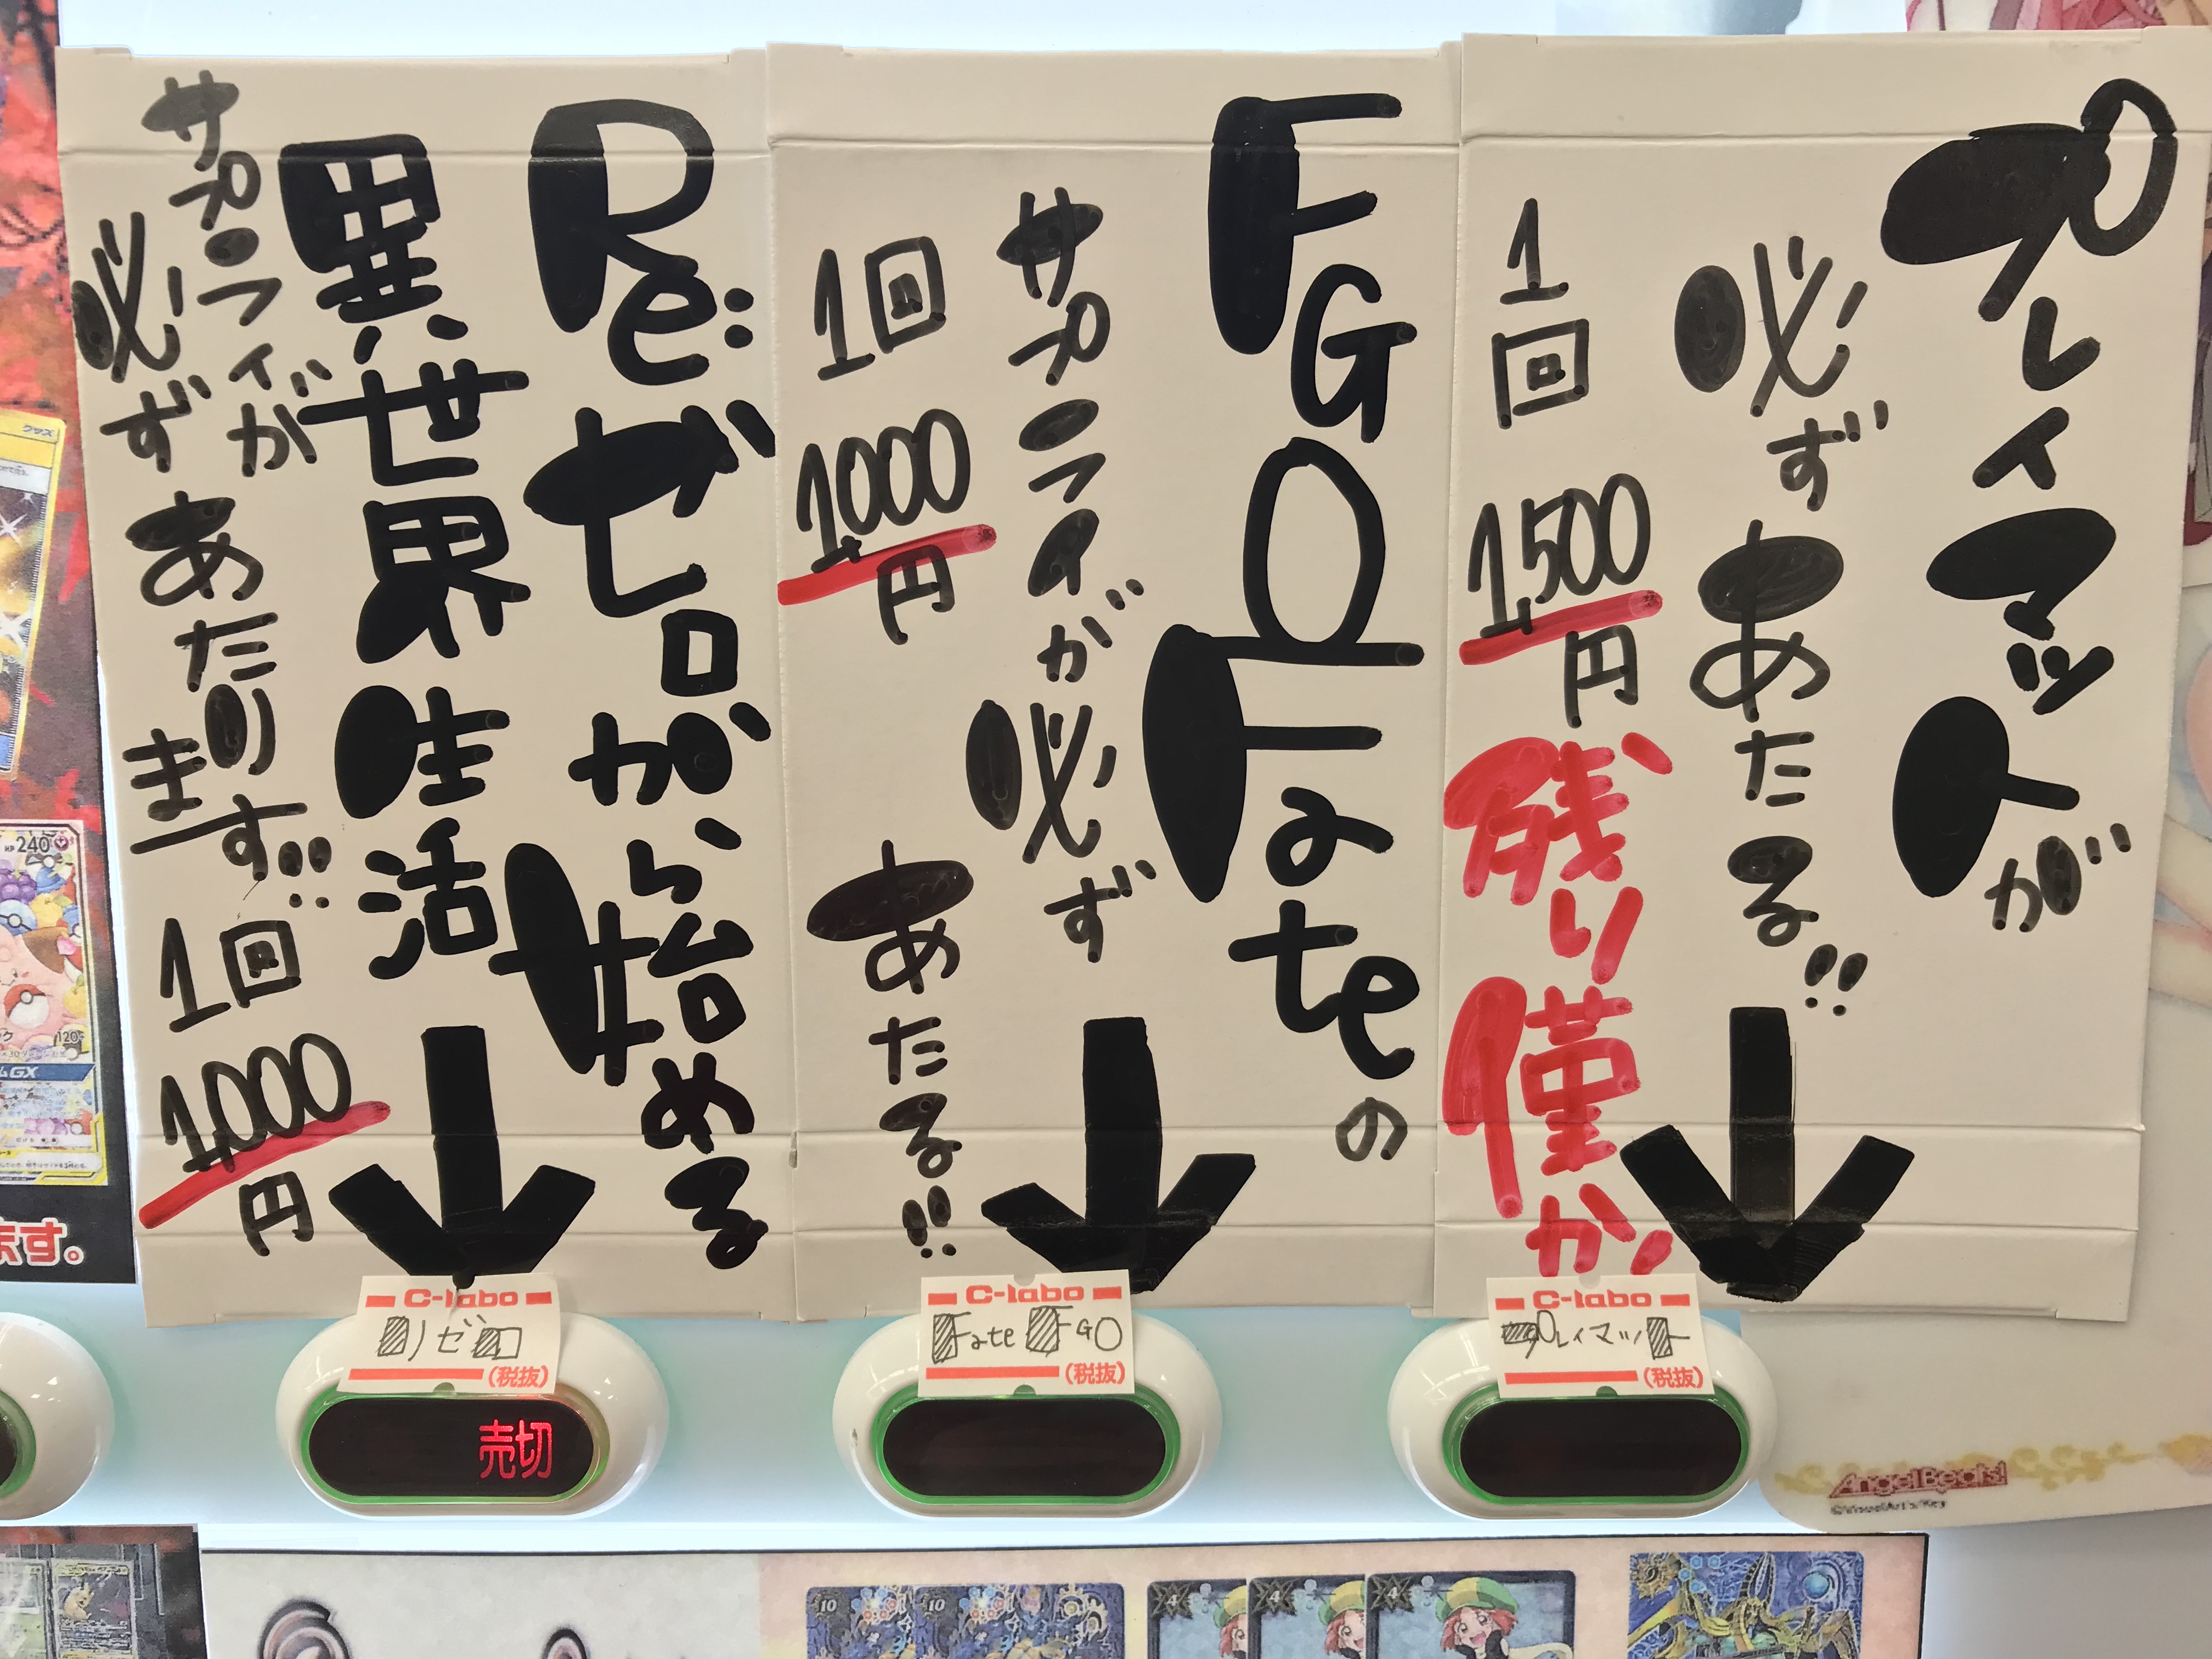 プレイマットが
必ずあたる!!
1回
1,500円
残り僅か
FGO Fateの
サプライが必ず
あたる!!
1回
1,000円
Re:ゼロから始める
異世界生活
サプライが
必ずあたります!!
1回
1,000円
C-labo
リゼロ
(税抜)
売切
C-labo
Fate FGO
(税抜)
C-labo
プレイマット
(税抜)
Angel Beats!
©VisualArt's/Key
グッズ
HP240
120
GX
ます。
10
10
4
4
4